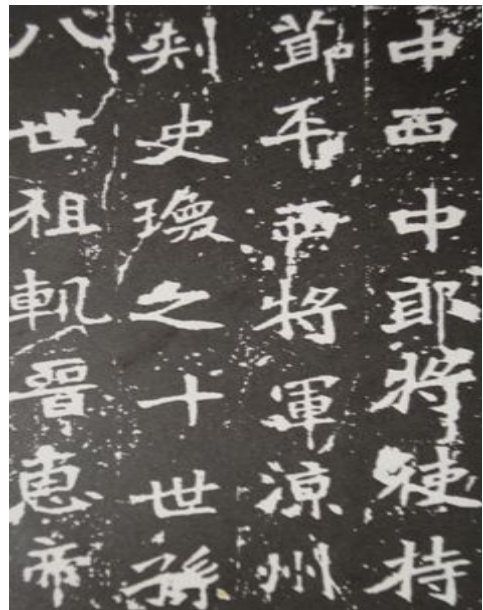 中西中郎將使持
莭平西將軍涼州
刾史瑍之十世孫
八世祖軌晉恵帝